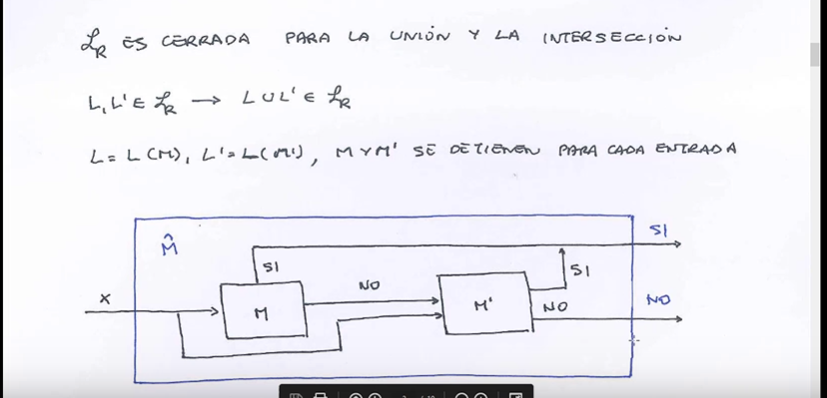 ℒR ES CERRADA PARA LA UNIÓN Y LA INTERSECCIÓN
L, L' ∈ ℒR → L ∪ L' ∈ ℒR
L = L(M), L' = L(M'), M Y M' SE DETIENEN PARA CADA ENTRADA
M̂
SI
SI
SI
NO
X
M
M'
NO
NO